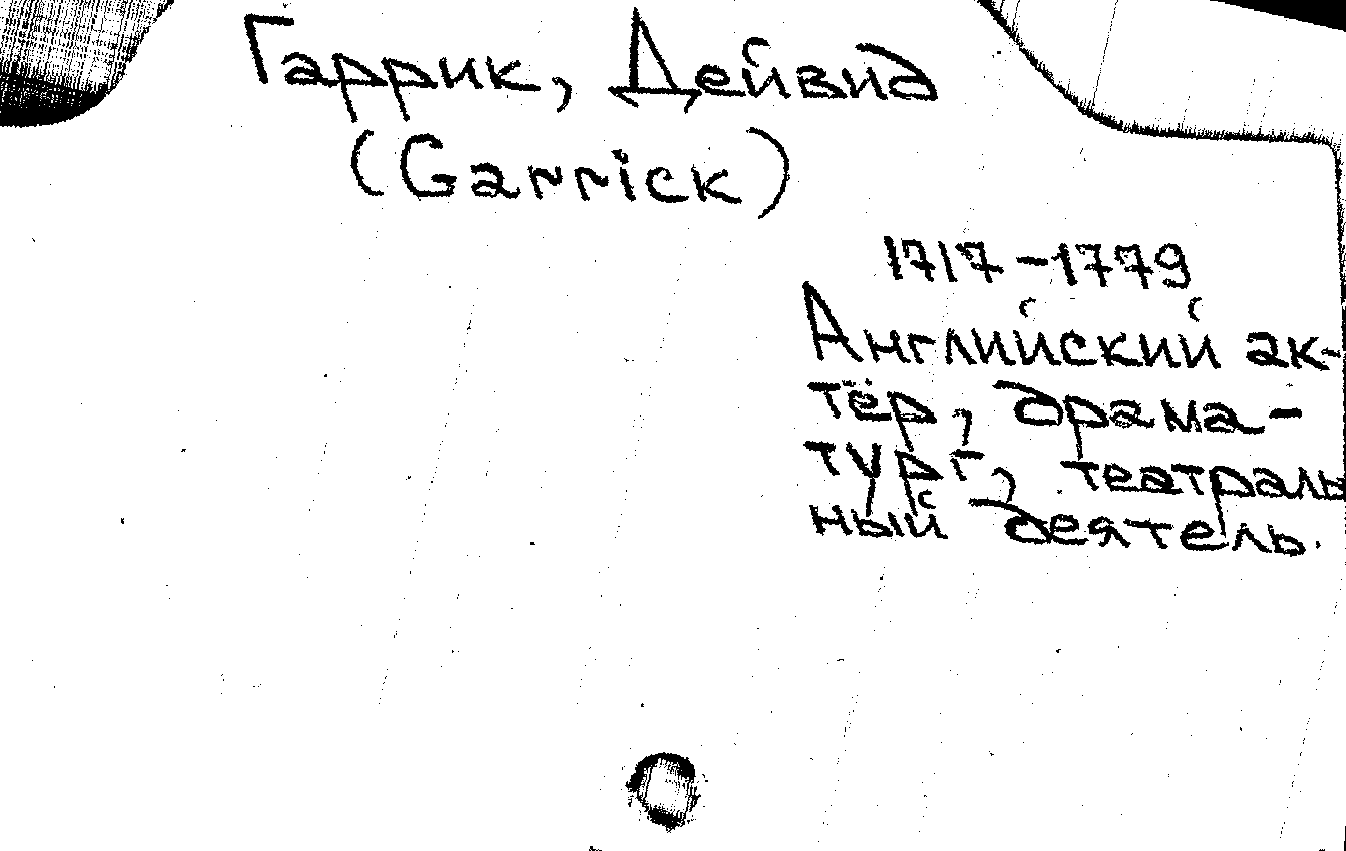 Гаррик, Дейвид
(Garrick)
1717-1779
Английский ак-
тёр, драма-
тург, театраль
ный деятель.